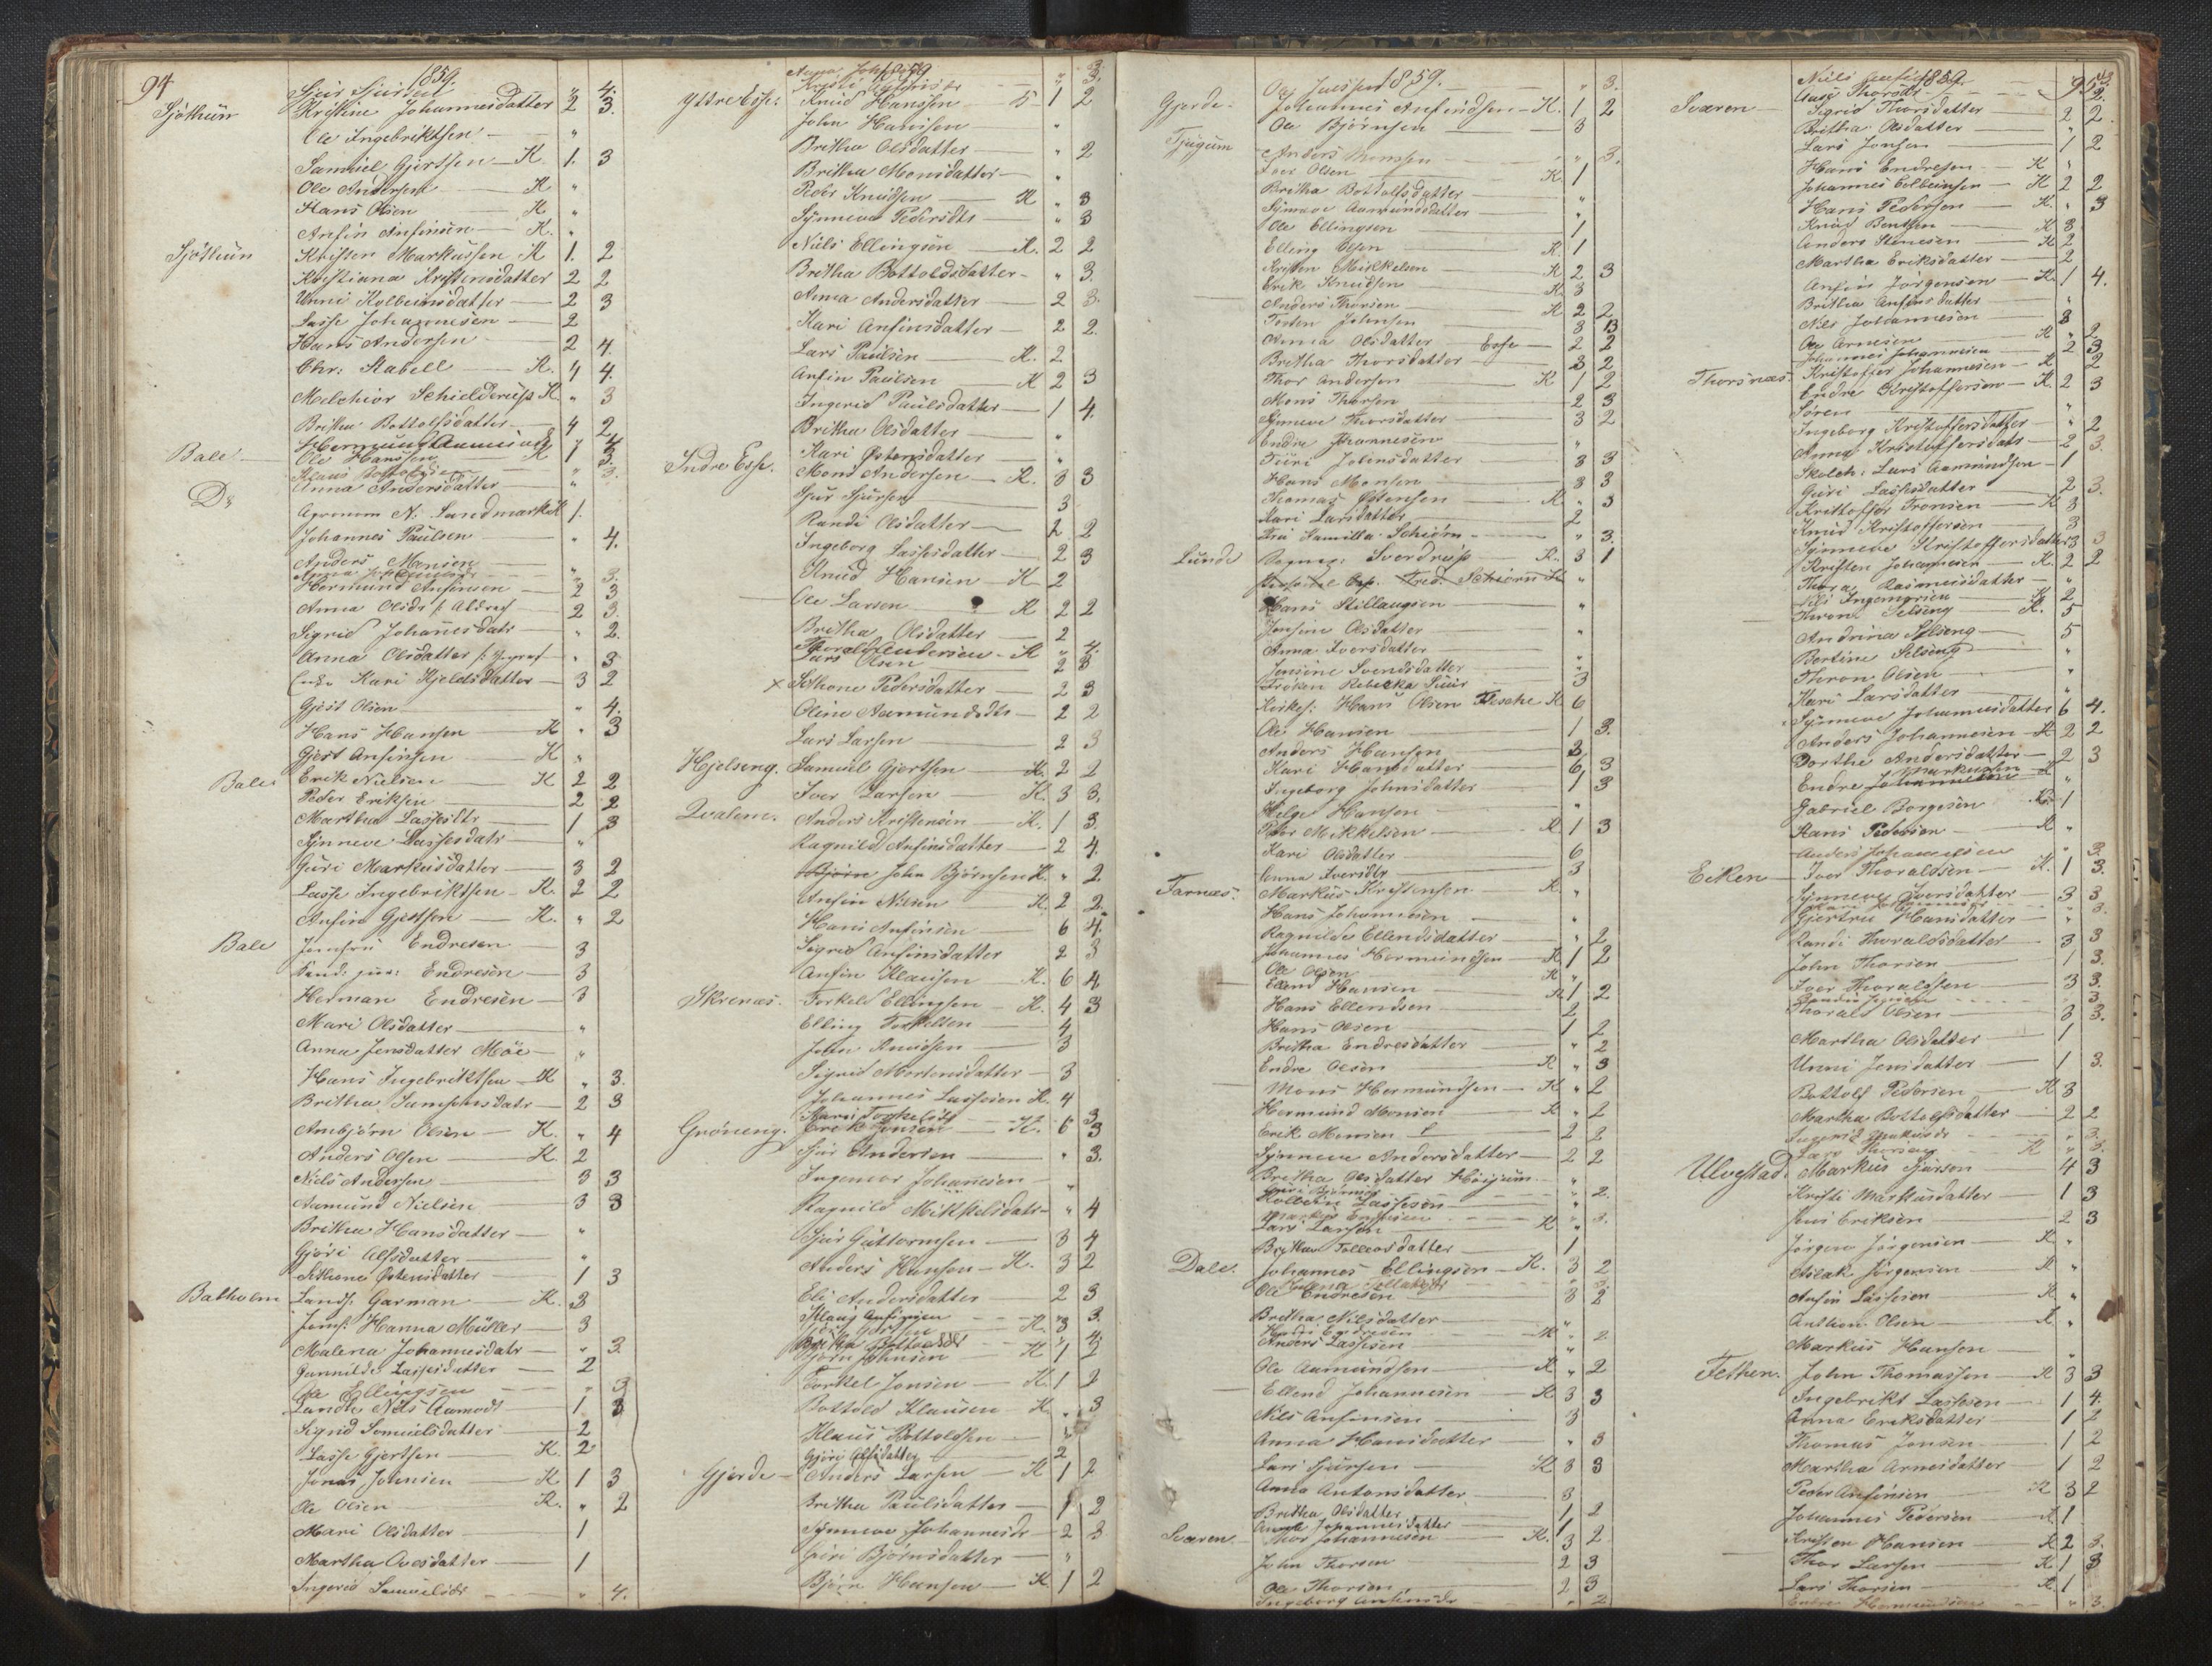 94
1859.
Sjur Sjursen " 4.
Sjøthun Kristine Johannesdatter 2 3.
Ole Ingebriktsen "
Samuel Gjertsen K 1. 3
Ole Andersen K "
Hans Olsen K "
Anfin Anfinsen K. "
Sjøthun Kristen Markussen K 1. 2
Kristiana Kristensdatter 2 2
Unni Kolbeinsdatter 2 3
Lasse Johannesen 2
Hans Andersen 2 4.
Chr: Stabell K. 4 4.
Melchior Schielderup K. " 3
Britha Bottolfsdatter 4 2
Bale Ole Hanssen K 1 3.
D: Anna Andersdatter "
Agronom N. Sandmark K 1.
Johannes Paulsen " 4.
Anders Monsen "
Hermund Anfinsen 2 3
Anna Olsdr 2 3.
Sigrid Johannesdatr " 2.
Anna Olsdatter " 3
Kari Kjeldsdatter 3 2
Gjest Olsen " 4.
Hans Hansen K " 3
Gjert Anfinsen K "
Bale Erik Nielsen K 2 2
Peder Eriksen 2 2
Martha Lassesdtr 1 3
Synneve Lassesdatr "
Guri Markusdatter 3 2
Lasse Ingebriktsen K. 2 2
Anfin Gjertsen K. " 2
Bale Endresen 3
Endresen 3
Herman Endresen 3
Mari Olsdatter "
Anna Jensdatter Möe "
Hans Ingebriktsen K " 3.
Britha Samsonsdatr 2 3
Ambjörn Olsen K. " 4
Anders Olsen K. 2
Niels Andersen 3 3
Aamund Nielsen 3 3
Britha Hansdatter "
Gjöri Alfsdatter "
Sithone Østensdatter 1 3
Balholm Landh. Garman K. 3
Jomf: Hanna Müller 3
Malena Johannesdatr " 3.
Gunnilde Lassesdatter 2
Ole Ellingsen " 3
Landh: Nils Aamodt 1. 3
Sigrid Samuelsdatter 2
Lasse Gjertsen K. 2
Jonas Johnsen K 1 3
Ole Olsen K. " 2
Mari Olsdatter 1
Martha Ovesdatter 1
Ingerid Samuelsdr " 4.
1859
Yttre Esse: Knud Hanssen 5 1 2
John Hanssen "
Britha Olsdatter " 2
Britha Monsdatter "
Peder Knudsen K " 3
Synneva Pedersdtr " 3
Niels Ellingsen K. 2 2
Britha Bottoldsdatter " 3.
Anna Andersdatter 2 3.
Kari Anfinsdatter 2 2.
Lars Paulsen K. 2
Anfin Paulsen K 2 3
Ingerid Paulsdatter 1 4.
Britha Olsdatter "
Kari Østensdatter "
Indre Esse. Mons Andersen K. 3 3
Sjur Sjursen 3
Randi Olsdatter 2 2
Ingeborg Lassesdatter 2 3
Knud Hansen K 2
Ole Larsen K 2 2
Britha Olsdatter 2
Thorald Endresen K " 4.
Lars Olsen 2 3
x Sithone Pedersdatter 2 3
Oline Aamundsdtr 2 2
Lars Larsen 2 3
Hjelseng. Samuel Gjertsen K. 2 2
Iver Larsen K. 3 3.
Qvalem. Anders Kristensen K. 1 3.
Ragnild Anfinsdatter 2 4.
Björn John Björnsen K. " 2
Anfin Nilsen K. 2 2.
Hans Anfinsen 6 4.
Sigrid Anfinsdatter 2 3
Anfin Klausen K. 6 4
Skrenæs. Torkeld Ellingsen K. 4 3
Elling Torkelsen 4
John Knudsen 3
Sigrid Mortensdatter 3
Johannes Lassesen K. 4
Grøneng. Erik Jonsen K. 6 3
Sjur Andersen " 3.
Ingemor Johannesen "
Ragnild Mikkelsdatr " 4
Sjur Guttormsen 3 4
Anders Hansen K. 3 2
Eli Andersdatter 2 3
Klaus Anfinsen " 3.
Björn Johnsen K 1 2
Torkel Jonsen K. 1 2
Bottold Klausen K. " 3
Klaus Bottoldsen
Gjöri Alfsdatter 2
Gjerde Anders Larsen K 1 2
Britha Paulsdatter 1 2
Synneve Johannesdr 2 3
Guri Björnsdatter "
Björn Hansen K 1 2
1859.
Gjerde Johannes Anfindsen K. 1 2
Ole Bjørnsen 3
Tjugum Anders Monsen " 3.
Iver Olsen K. 1
Britha Bottolfsdatter "
Synneve Aamundsdatter "
Ole Ellingsen 1
Elling Olsen K. 1
Kristen Mikkelsen K 2 3
Erik Knudsen K. 3
Anders Thorsen K 2 2
Torsten Johnsen 3 3
Anna Olsdatter Esse 2 2
Britha Thorsdatter 3 2
Thor Andersen K 1 2
Mons Thorsen 2 3
Synneve Thorsdatter 3 2
Endre Johannesen "
Turi Johnsdatter 3 3
Hans Monsen 3 3
Thomas Østensen K " 3
Mari Larsdatter 2
Fru Camilla Schiørn " 3.
Lunde Sogne: Sverdrup K. 3 1
Hans Stillaugsen "
Jensine Olsdatter "
Anna Iversdatter "
Jensine Svendsdatter "
Frøken Rebekka Suur 3
Kirkes: Hans Olsen Fleische K 6
Ole Hansen 1 3.
Anders Hansen 3
Kari Hansdatter 6 3
Ingeborg Johnsdatter 1 3
Helge Hansen "
Peder Mikkelsen K 1 3
Kari Olsdatter 6
Anna Iversdtr 3
Farnæs: Markus Kristensen K. "
Hans Johannesen "
Ragnilde Ellendsdatter " 2
Johannes Hermundsen K 1 2
Ole Olsen K "
Ellend Hansen K 1 2
Hans Ellendsen 2
Hans Olsen 1 2
Britha Endresdatter " 2
Endre Olsen K " 3
Mons Hermundsen K " 2
Hermund Monsen K " 2
Erik Monsen 2 2
Synneve Andersdatter 2 2
Britha Olsdatter Höijum "
Kolbein Lassesen "
Lars Larsen K "
Britha Tollevsdatter 1
Dale. Johannes Ellingsen K. 3 2
Ole Endresen 3 2
Britha Nilsdatter "
Anders Lassesen "
Ole Aamundsen K " 2
Ellend Johannesen K 3 3
Nils Anfinsen 3
Anna Hansdatter " 3
Lars Sjursen K 3 3
Anna Antonsdatter 3
Britha Olsdatter 1 2
Anna Johannesdatter 1
Sværen Thor Johannesen K. 3 2
John Thorsen 2 3
Ole Thorsen 2 3
Ingeborg Anfinsdr " 2
1859.
95
Sværen Sigrid Thorsdatter 2 2
Britha Olsdatter "
Lars Jonsen 1 2
Hans Endresen K "
Johannes Kolbeinsen K 2 2
Hans Pedersen K. " 3
Knud Bentsen K 3
Anders Stenesen K 2
Martha Eriksdatter 2
Anfin Jörgensen K. 1 4.
Britha Anfinsdatter "
Nils Johannesen 3
Ole Arnesen K " 2
Johannes Johannesen 2 3
Thorsnæs Kristoffer Johannesen K. " 2
Endre Kristoffersen K. 2 3
Søren "
Ingeborg Kristoffersdatter " 2
Anna Kristoffersdatr 2 3.
Skoleh: Lars Aamundsen 1
Guri Lassesdatter 2 3.
Kristoffer Tronsen K 3
Knud Kristoffersen 3
Synneve Kristoffersdatter 3 3
Kristen Johannesen K. 2 2
Thora Rasmusdatter "
Nils Ingemorsen K 2
Thron Selseng K. 5
Andrina Selseng 5
Bertine Selseng "
Thron Olsen "
Kari Larsdatter "
Synneve Johannesdatter 6 4.
Anders Johannesen K 2 2
Dorthe Andersdatter 2 3
Endre Markusen K "
Gabriel Borgesen K 1
Hans Pedersen K "
Anders Johannesen " 3.
Eeken Iver Thoraldsen K. 1 3.
Synneve Iversdatter 3 3
Gjertru Hansdatter "
Randi Thoraldsdatter 3 3
John Thorsen 1 3.
Iver Thoraldsen 3 3.
Thorald Olsen 3 3.
Martha Olsdatter 1
Unni Jensdatter 1 3.
Bottolf Pedersen K 3
Martha Bottolfsdatter 2 2
Ingerid Markusdr " 3.
Lars Thorsen K " 3.
Ulvestad. Markus Sjursen 4 3
Kristi Markusdatter 1 3
Jens Eriksen 2 3
Jörgen Jörgensen K "
Aslak Jörgensen K "
Anfin Lassesen K. "
Anthon Olsen K. "
Markus Hansen "
Fethen. John Thomassen K 3 3
Ingebrikt Lassesen 1 4.
Anna Eriksdatter 1 2
Thomas Jonsen 1 2
Martha Arnesdatter 1 2
Peder Anfinsen K 3 2
Johannes Pedersen K 1
Kristen Hansen K 2 3.
Thor Larsen K. 1 3
Lars Thorsen K. 1
Endre Hermundsen " 3.